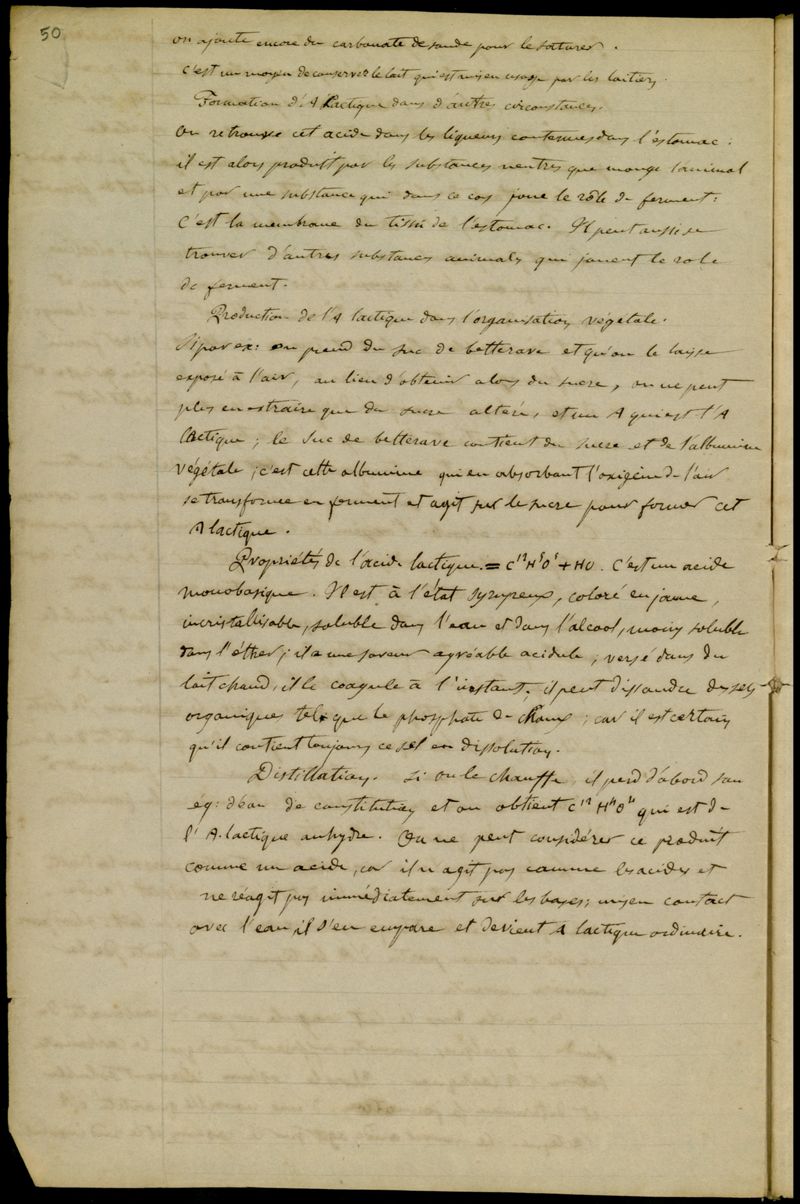 50
on ajoute encore du carbonate de soude pour le saturer.
C'est un moyen de conserver le lait qui est mis en usage par les laitiers.
Formation d'A Lactique dans d'autres circonstances.
On retrouve cet acide dans les liqueurs contenues dans l'estomac :
il est alors produit par les substances neutres que mange l'animal
et par une substance qui dans ce cas joue le rôle de ferment :
C'est la membrane du tissu de l'estomac. Il peut aussi se
trouver d'autres substances animales qui jouent le role
de ferment.
Production de l'A lactique dans l'organisation végétale.
Si par ex : on prend du suc de betterave et qu'on le laisse
exposé à l'air, au lieu d'obtenir alors du sucre, on ne peut
plus en extraire que du sucre altéré, et un A qui est l'A
lactique ; le suc de betterave contient du sucre et de l'albumine
végétale ; c'est cette albumine qui en absorbant l'oxigène de l'air
se transforme en ferment et agit sur le sucre pour former cet
A lactique.
Propriétés de l'acide lactique. = C¹²H⁵O⁵ + HO. C'est un acide
monobasique. Il est à l'état syrupeux, coloré en jaune,
incristallisable, soluble dans l'eau et dans l'alcool, moins soluble
dans l'éther ; il a une saveur agréable acidule ; versé dans du
lait chaud, il le coagule à l'instant ; il peut dissoudre des sels
organiques tels que le phosphate de chaux ; car il est certain
qu'il contient toujours ce sel en dissolution.
Distillation. Si on le chauffe, il perd d'abord son
éq : d'eau de constitution et on obtient C¹² H¹⁰ O¹⁰ qui est de
l'A. lactique anhydre. On ne peut considérer ce produit
comme un acide, car il n'agit pas comme les acides et
ne réagit pas immédiatement sur les bases ; mis en contact
avec l'eau il s'en empare et devient A lactique ordinaire.